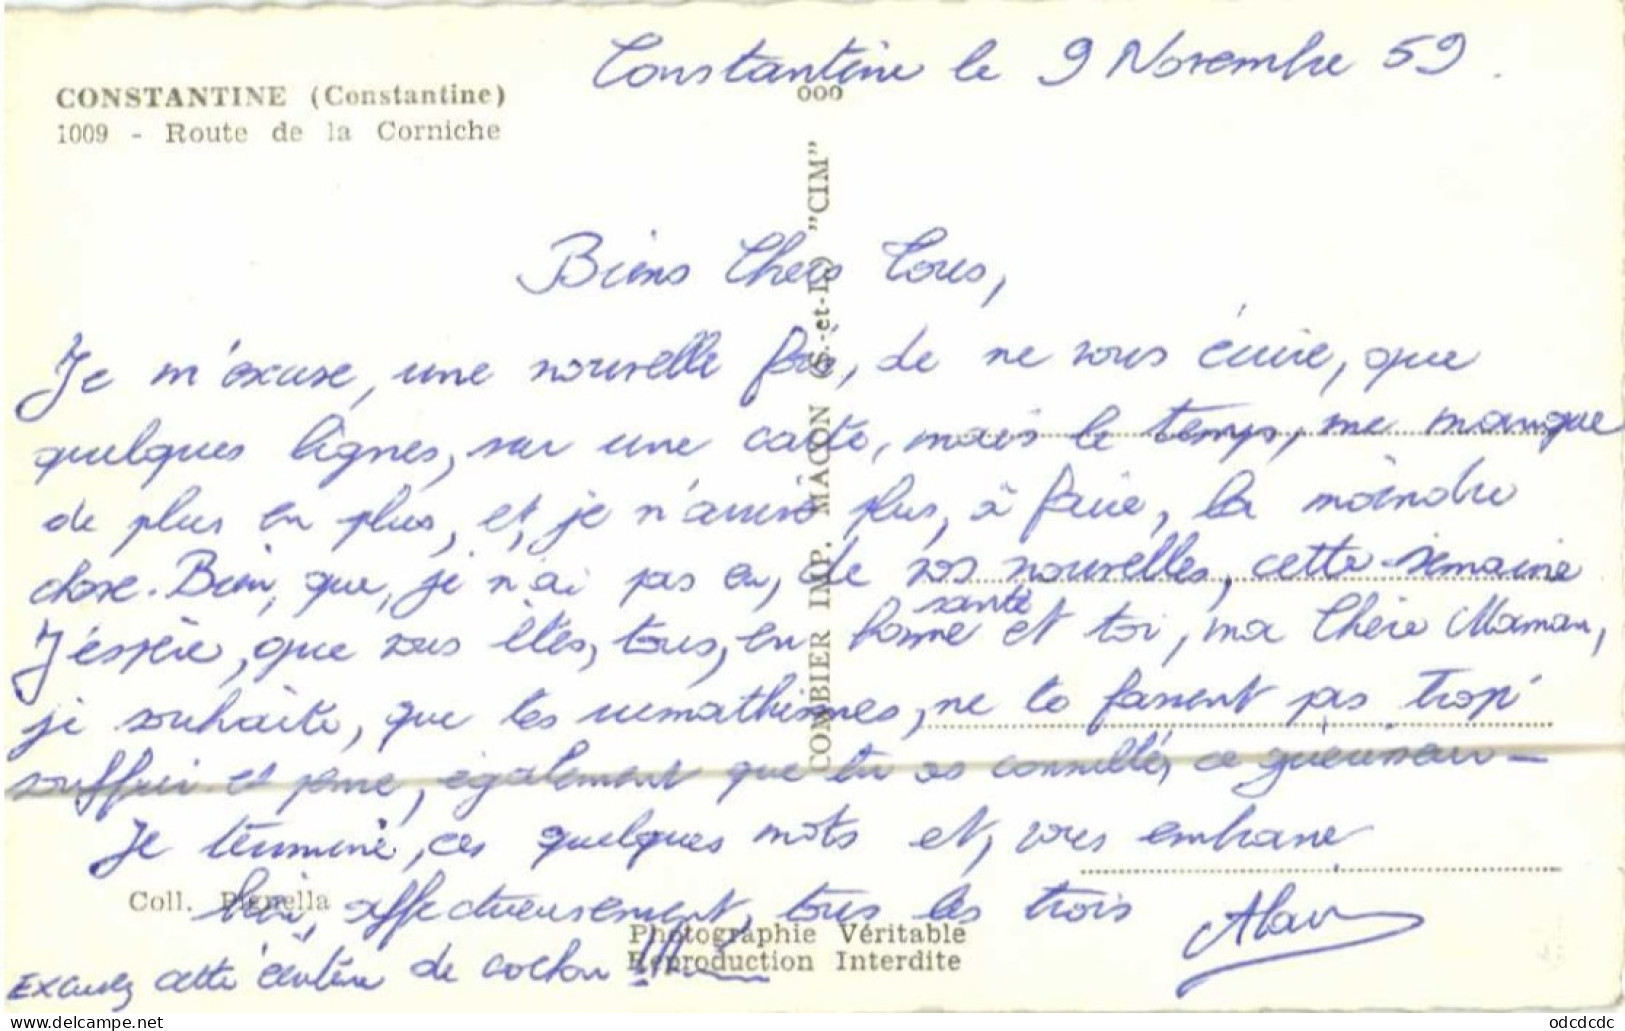 Constantine le 9 Novembre 59.
CONSTANTINE (Constantine)
1009 - Route de la Corniche
COMBIER IMP. MACON (S.-et-L.) "CIM"
Biens Chers Tous,
Je m'excuse, une nouvelle fois, de ne vous écrire, que
quelques lignes, sur une carte, mais le temps, me manque
de plus en plus, et, je n'arrive plus, à faire, la moindre
chose. Bien, que, je n'ai pas eu, de vos nouvelles, cette semaine
J'espère, que vous êtes, tous, en bonne santé et toi, ma Chère Maman,
je souhaite, que tes rhumathismes, ne te fassent pas trop
souffrir et pense, également que tu as consulté, ce guérisseur -
Je termine, ces quelques mots et, vous embrasse
bien, affectueusement, tous les trois
Alain
Coll. Pignella
Photographie Véritable
Reproduction Interdite
Excusez cette écriture de cochon !!!
delcampe.net
odcdcdc